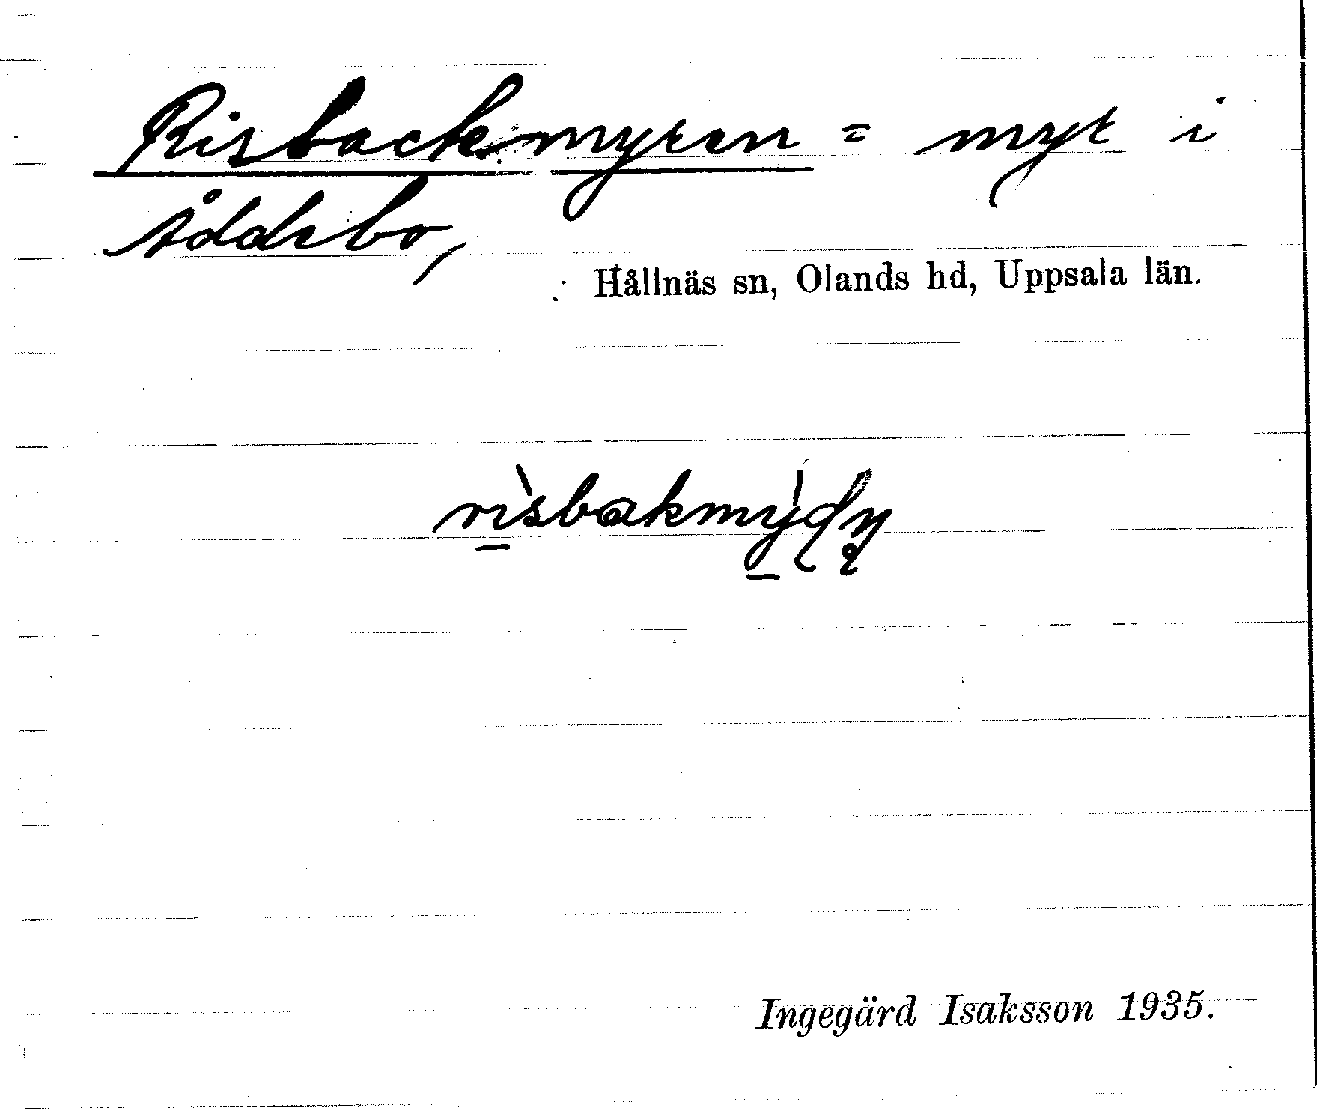 Risbackmyren = myr i
Åddebo,
Hållnäs sn, Olands hd, Uppsala län.
Ingegärd Isaksson 1935.